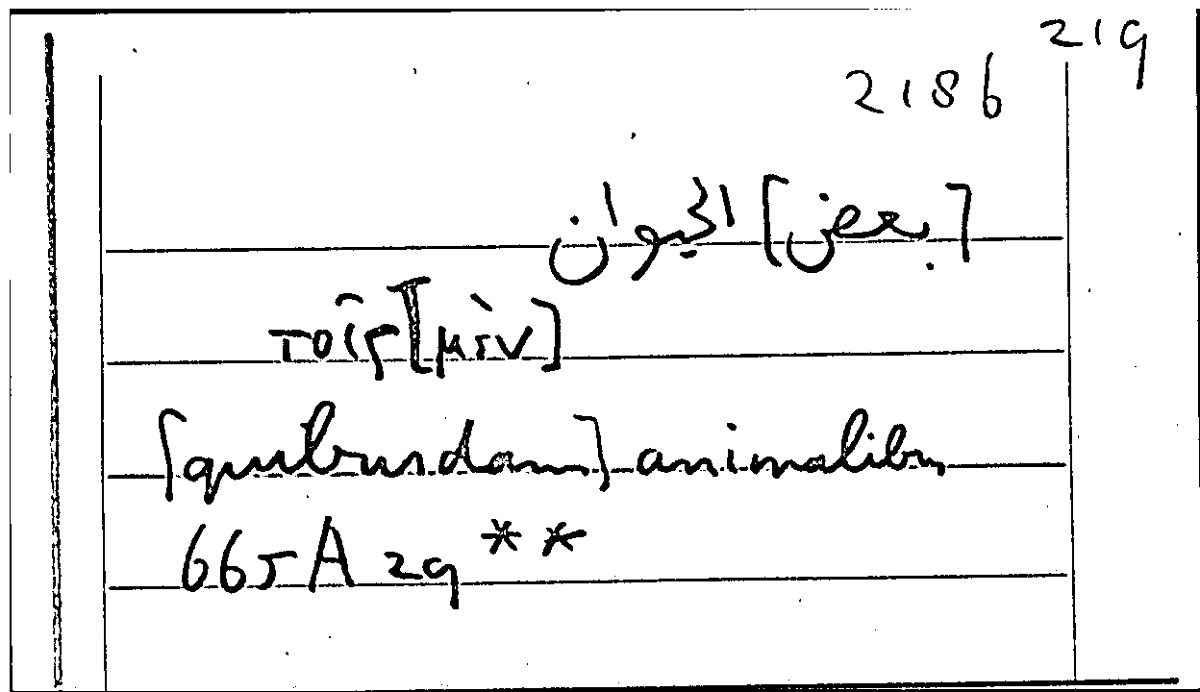 219
2186
[بعض] الحيوان
τοῖς [μὲν]
[quibusdam] animalibus
665A 29 **